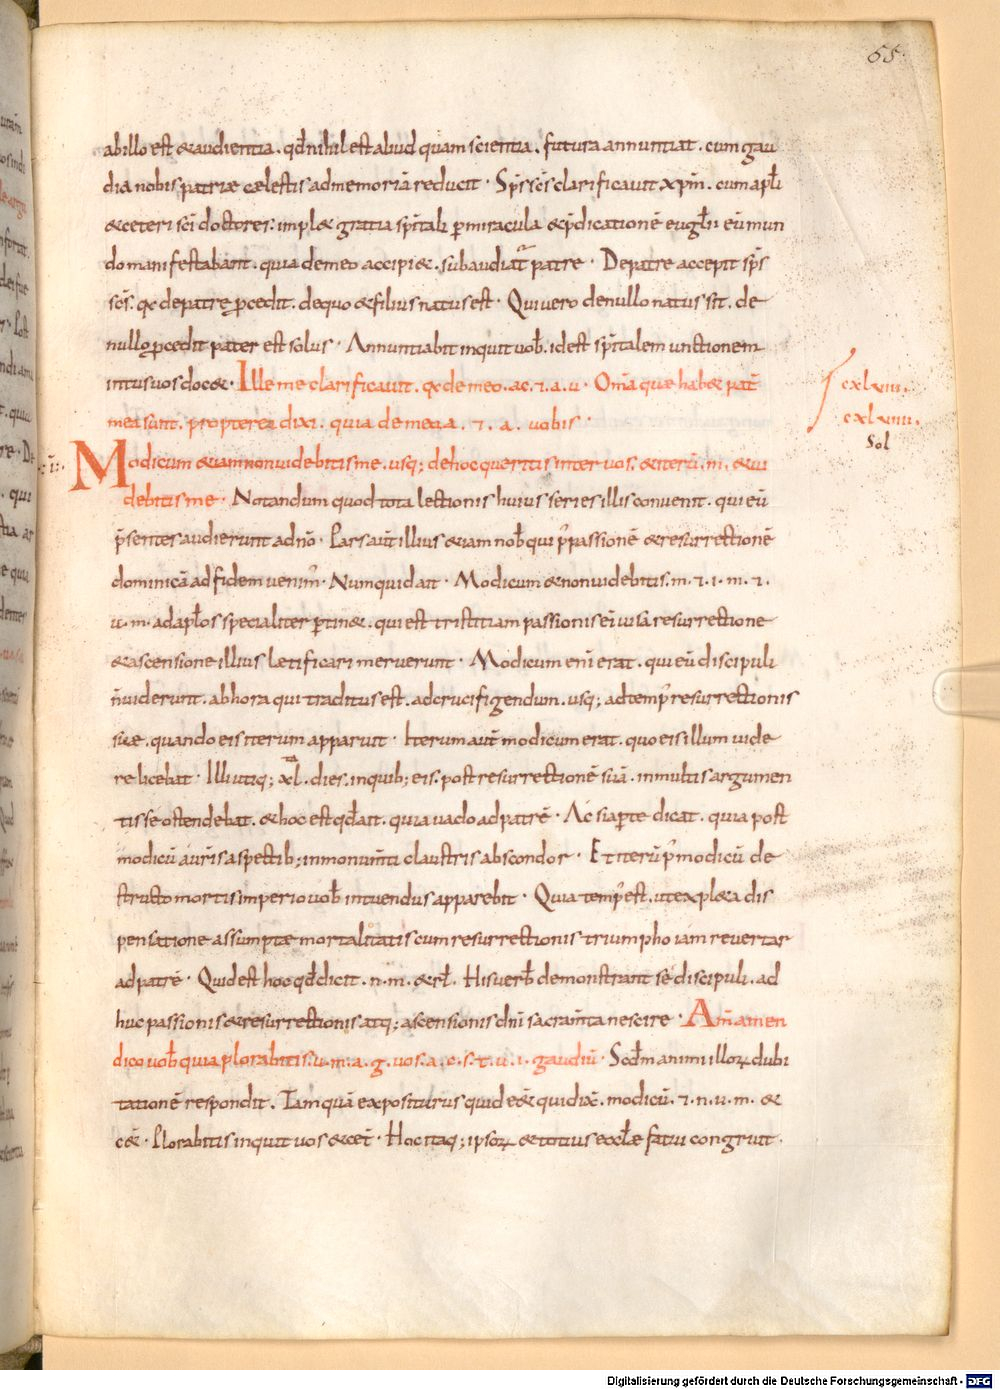 55
ab illo est & audientia . qđ nihil est aliud quam scientia . futura annuntiat . cum gau
dia nobis patriæ cælestis ad memoriā reducit · Sps̄ sc̄s clarificauit xp̄m . cum apłi
& ceteri sc̄i doctores . impl& gratia spitali p miracula & p̄dicationē eugłii eū mun
do manifestabant . quia de meo accipi& . subaudiat̃ patre · De patre accepit sps̄
sc̄s . qc de patre pcedit . de quo & filius natus est · Qui uero de nullo natus sit . de
nullo pcedit pater est solus · Annuntiabit inquit uob̄ . id est spitalem unctionem
intus uos doc& · Ille me clarificauit . qc de meo . ac . ⁊ . a . u · Om̄a quæ hab& pat̄
mea sunt . propterea dixi . quia de mea a . ⁊ . a . uobis ·
cxlviii .
cxlviiii .
Sol
Modicum & iam non uidebitis me . usq; de hoc queritis inter uos . & iterū . m . & ui
debitis me · Notandum quod tota lectionis huius series illis conuenit . qui eū
p̄sentes audierunt a dn̄o · Pars aūt illius & iam nob̄ qui p' passionē & resurrectionē
dominicā ad fidem uenim' · Numquid ait · Modicum & non uidebitis . m . ⁊ . i . m . ⁊ .
u . m . ad apłos specialiter ptin& . qui est tristitiam passionis ei uisa resurrectione
& ascensione illius letificari meruerunt · Modicum eni erat . qui eū discipuli
ñ uiderunt . ab hora qui traditus est . ad crucifigendum . usq; ad temp' resurrectionis
suæ . quando eis iterum apparuit · Iterum aūt modicum erat . quo eis illum uide
re licebat · Illi utiq; xl . dies . in quib; eis . post resurrectionē suā . in multis argumen
tis se ostendebat . & hoc est qđ ait . quia uado ad patrē · Ac si apte dicat . quia post
modicū a uris aspectib; in monumti claustris abscondor · Et iterū p' modicū de
structo mortis imperio uob̄ intuendus apparebit · Quia temp' est . ut expl&a dis
pensatione assumptæ mortalitatis cum resurrectionis triumpho iam reuertar
ad patrē · Quid est hoc qđ dicit . n . m . & rł . His uerb̄ demonstrant se discipuli . ad
huc passionis & resurrectionis atq; ascensionis dn̄i sacramta nescire · Am̄ amen
dico uob̄ quia plorabitis . u . m . a . g . uos . a . c . s . t . u . i . gaudiū · Scđm animi illoꝝ dubi
tationē respondit . Tam quā expositurus quid e& quid ix̄ . modicū . ⁊ . n . u . m . &
c& · Plorabitis inquit uos & cet̄ · Hoc itaq; ipsoꝝ & totius eccłæ fatui congruit ·
Digitalisierung gefördert durch die Deutsche Forschungsgemeinschaft - DFG